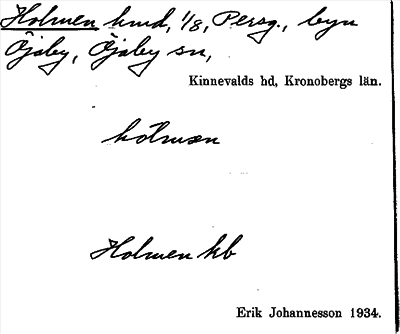 Holmen hmd, 1/8, Persg., byn
Öjaby, Öjaby sn,
Kinnevalds hd, Kronobergs län.
hòlmæn
Holmen hb
Erik Johannesson 1934.